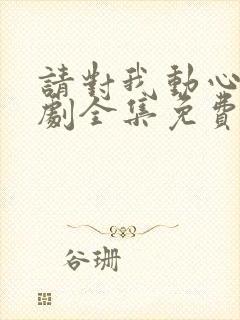 請對我動心
劇全集免費
谷珊